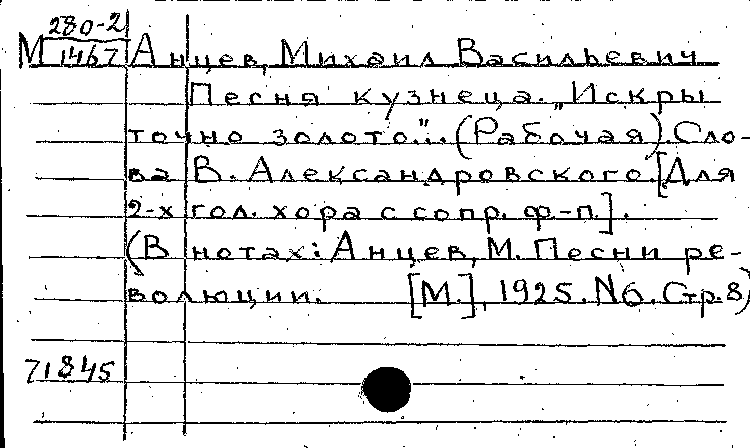 280-2
М 1467 Анцев, Михаил Васильевич
Песня кузнеца. „Искры
точно золото."... (Рабочая). Сло-
ва В. Александровского. [Для
2-х гол. хора с сопр. ф-п.].
(В нотах: Анцев, М. Песни ре-
волюции. [М.], 1925. N6. Стр. 8)
71845